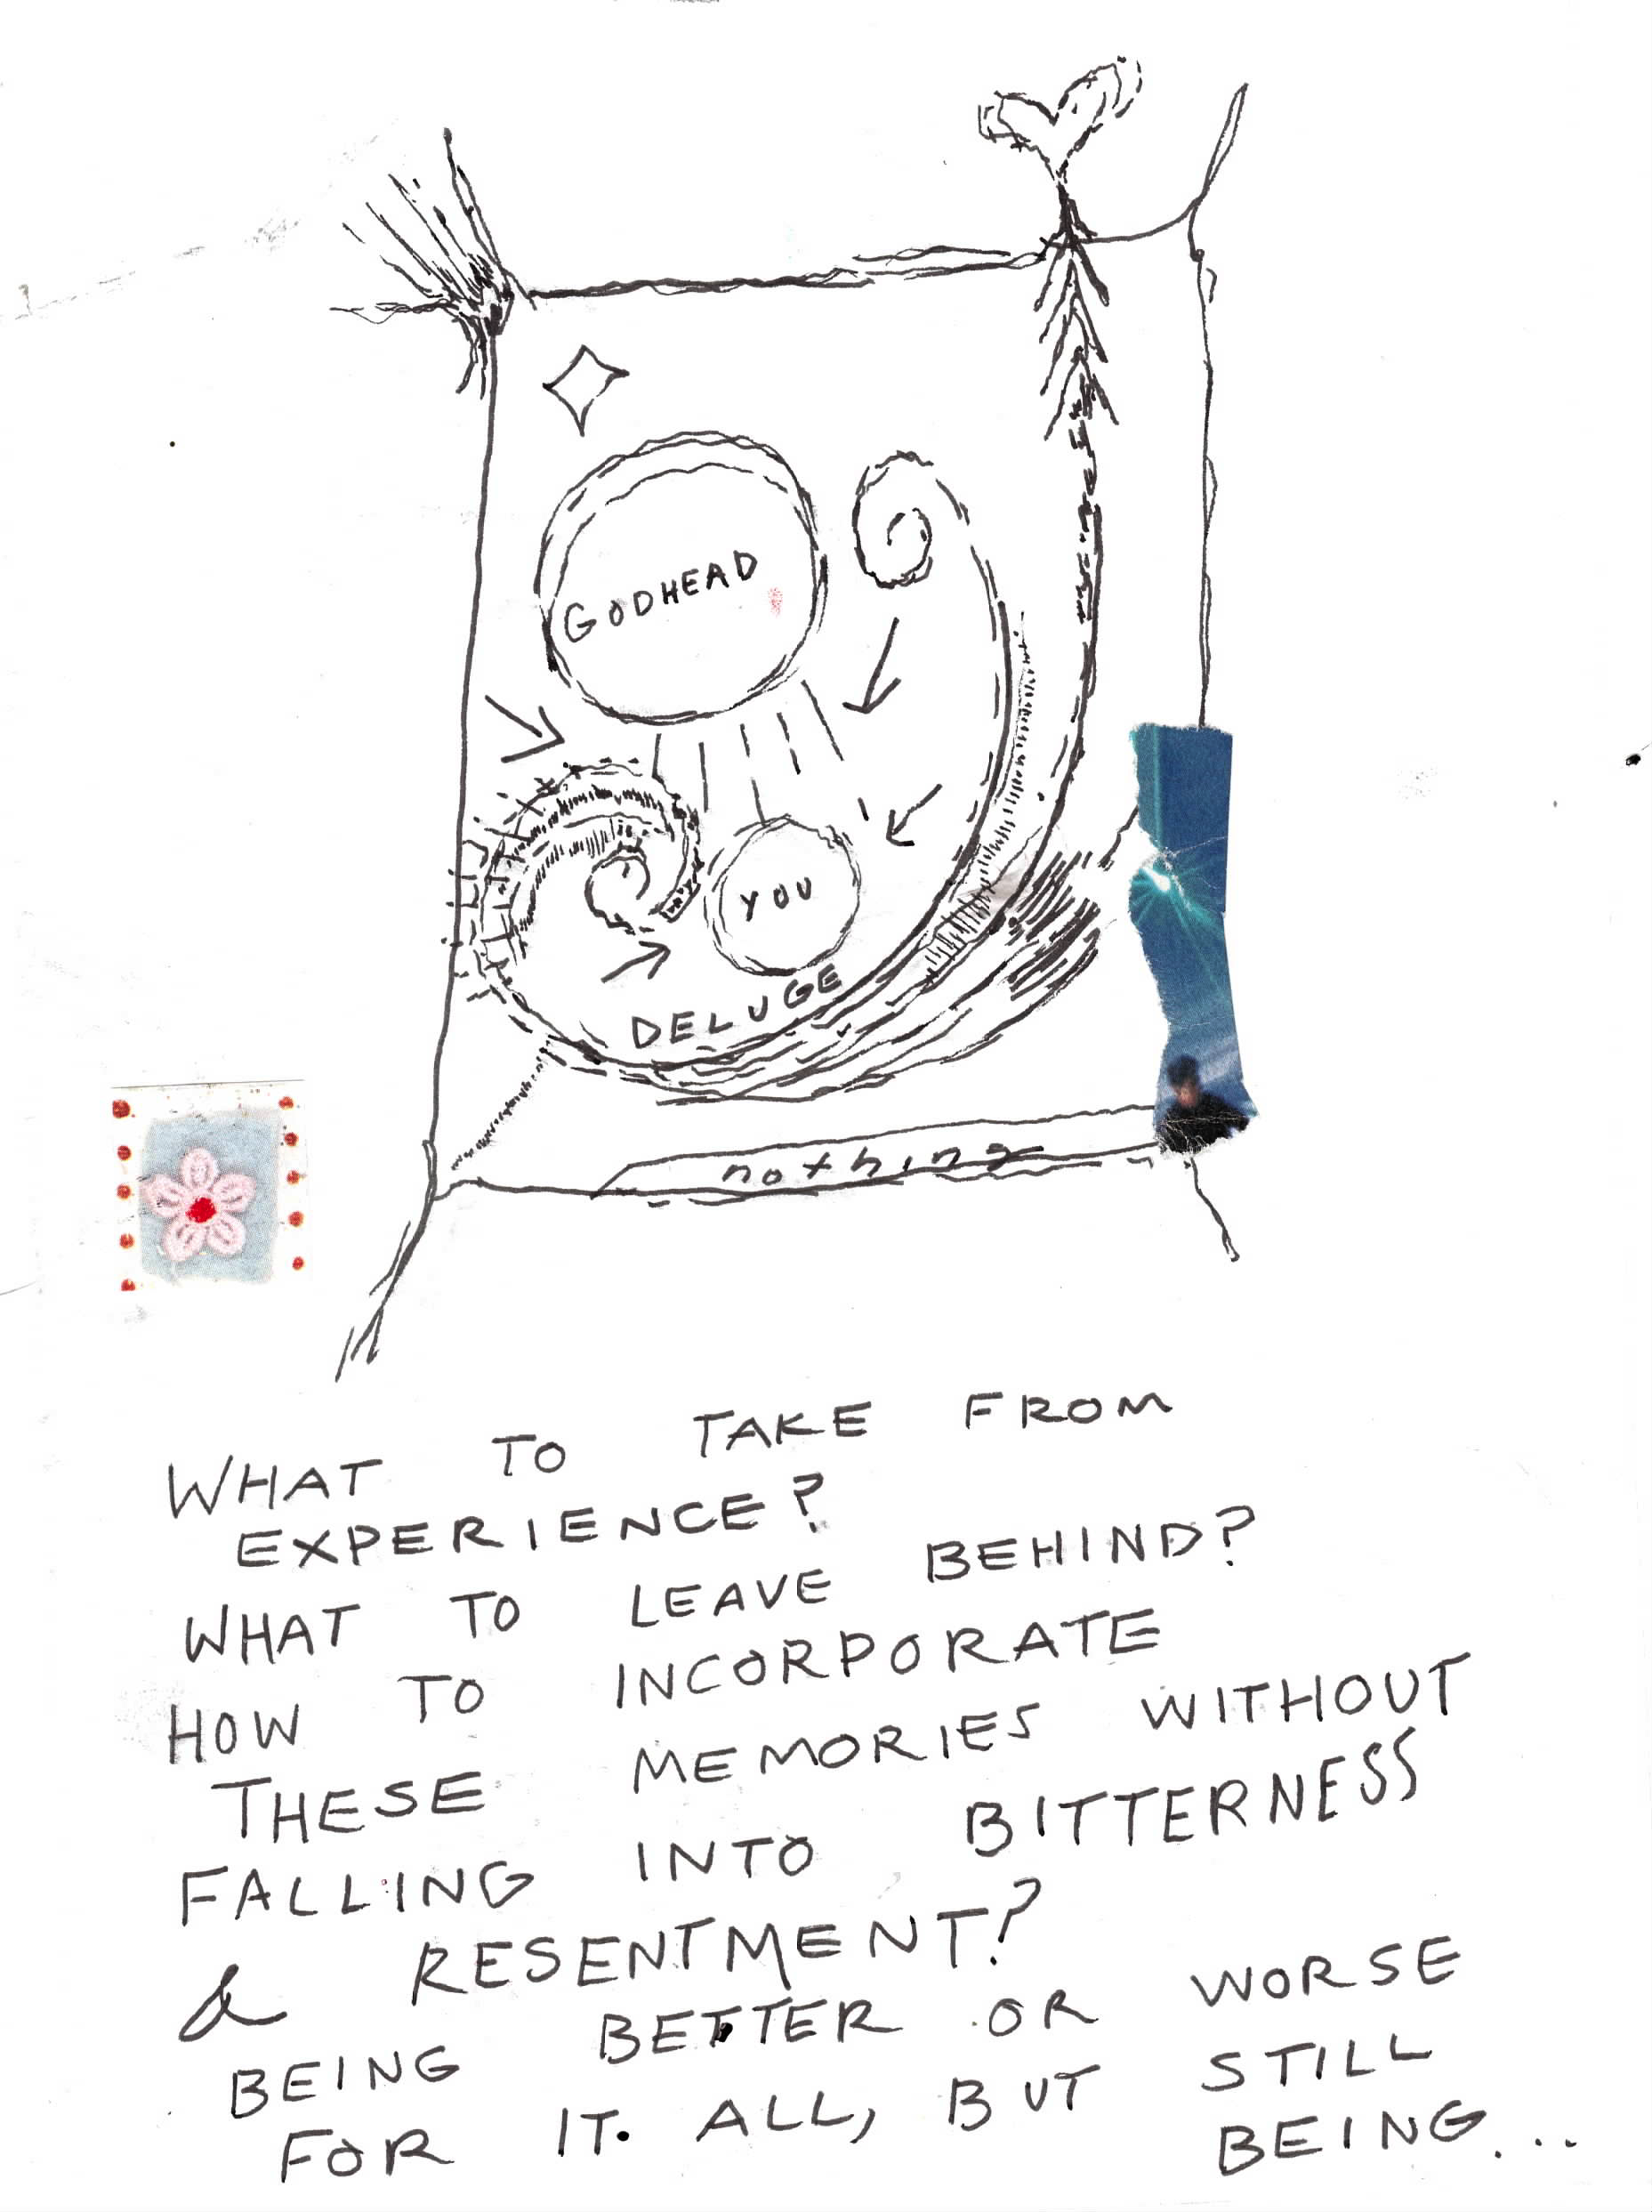 GODHEAD
YOU
DELUGE
nothing
WHAT TO TAKE FROM
EXPERIENCE?
WHAT TO LEAVE BEHIND?
HOW TO INCORPORATE
THESE MEMORIES WITHOUT
FALLING INTO BITTERNESS
& RESENTMENT?
BEING BETTER OR WORSE
FOR IT. ALL, BUT STILL
BEING...